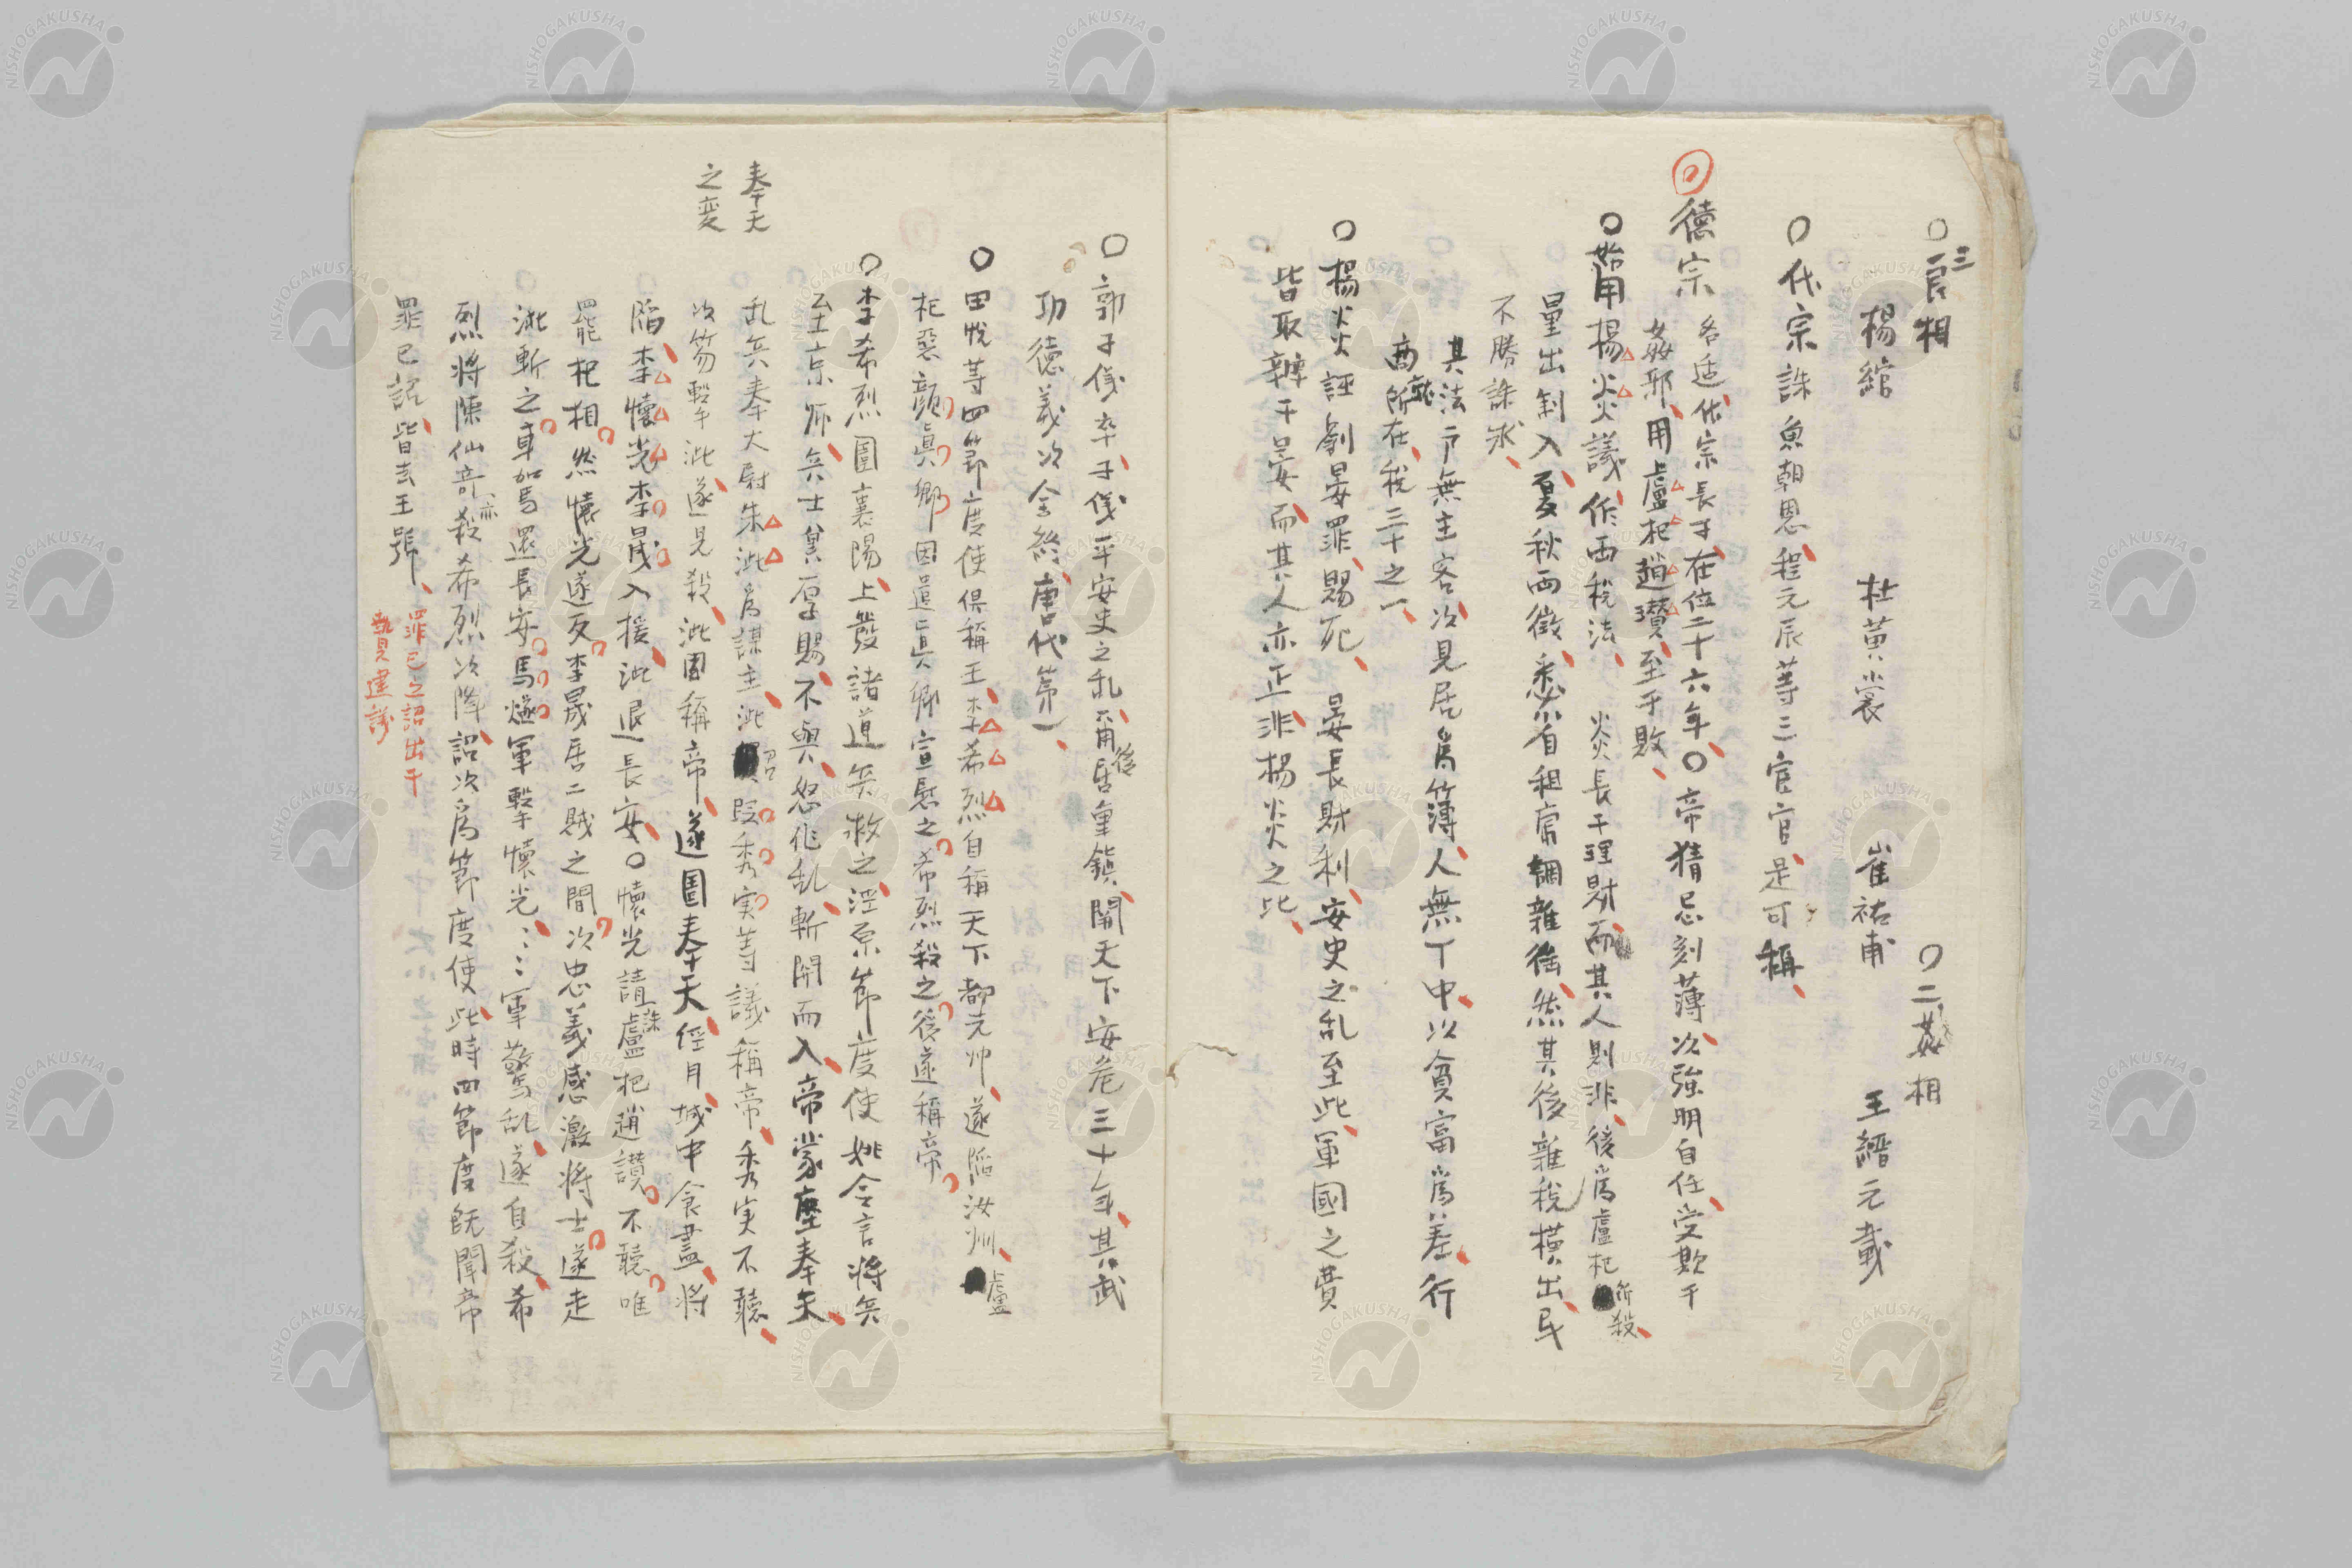 ○三良相　○二姦相
楊綰　杜黄裳　崔祐甫　王縉元載
○代宗誅魚朝恩、程元辰等三宦官、是可稱、
德宗　名适、代宗長子、在位二十六年、○帝猜忌刻薄、以強明自任、受欺于
姦邪、用盧杞趙瓚、至于敗、
○始用楊炎議、作两税法、炎長于理財、而其人則非、後為盧杞所殺、
量出制入、夏秋两徴、悉省租庸調雜徭、然其後雜税横出、民
不勝誅求、
其法戸無主客、以見居為簿、人無丁中、以貧富為差、行
商就所在、税三十之一、
○楊炎誣劉晏罪、賜死、晏長財利、安史之乱至此、軍國之費
皆取辨于晏、而其人亦正、非楊炎之比、
○郭子儀卒、子儀平安史之乱、爾後居重鎮、関天下安危三十年、其武
功德義以令終、唐代第一、
○田悦等四節度使倶稱王、李希烈自稱天下都元帅、遂陥汝州、盧
杞惡顔真卿、因遣真卿宣慰之、希烈殺之、後遂稱帝、
○李希烈圍襄陽、上發諸道兵救之、涇原節度使姚令言将兵
至京师、兵士冀厚賜、不與、怒作乱、斬関而入、帝蒙塵奉天、
奉天
之変
乱兵奉大尉朱泚為謀主、泚召段秀実等議稱帝、秀実不聽、
以笏撃泚、遂見殺、泚国稱帝、遂圍奉天、径月、城中食盡、将
陥、李懐光李晟入援、泚退長安、○懐光請誅盧杞趙讃、不聽、唯
罷杞相、然懐光遂反、李晟居二賊之間、以忠義感激将士、遂走
泚斬之、車駕還長安、馬燧軍撃懐光、〻〻軍驚乱、遂自殺、希
烈将陳仙奇亦殺希烈以降、詔以為節度使、此時四節度既聞帝
罪己詔、皆去王號、
罪己之詔出于
贄建議